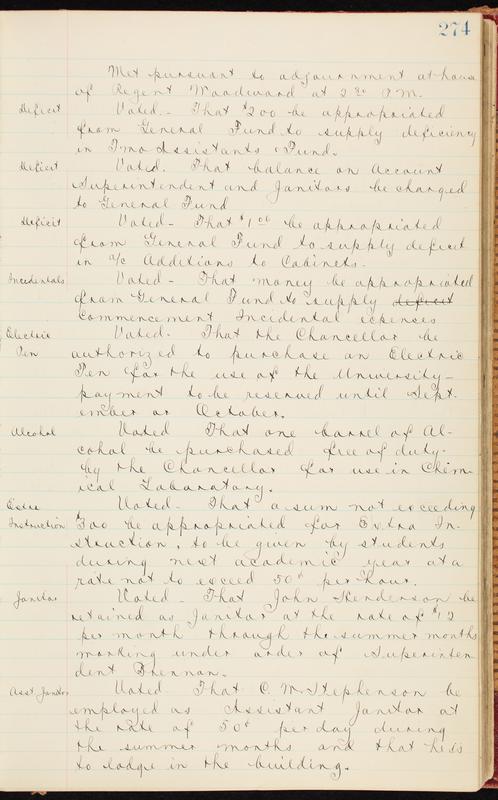 274
Met pursuant to adjournment at house
of Regent Woodward at 2 30 P.M.
Deficit Voted. - That $200 be appropriated
from General Fund to supply deficiency
in Two Assistants Fund.
Deficit Voted. That balance on Account
Superintendent and Janitors be charged
to General Fund
Deficit Voted - That $1 00 be appropriated
from General Fund to supply deficit
in a/c Additions to Cabinets.
Incidentals Voted - That money be appropriated
from General Fund to supply deficit
Commencement Incidental expenses
Electric Voted. That the Chancellor be
Pen authorized to purchase an Electric
Pen for the use of the University -
payment to be reserved until Sept-
ember or October.
Alcohol Voted That one barrel of Al-
cohol be purchased free of duty -
by the Chancellor for use in Chem-
ical Laboratory.
Extra Voted. - That a sum not exceeding
Instruction $300 be appropriated for Extra In-
struction, to be given by students
during next academic year at a
rate not to exceed 50¢ per hour.
Janitor Voted - That John Henderson be
retained as Janitor at the rate of $12
per month through the summer months
working under order of Superinten-
dent Brennan.
Asst Janitor Voted That C. M. Stephenson be
employed as Assistant Janitor at
the rate of 50¢ per day during
the summer months and that he is
to lodge in the building.